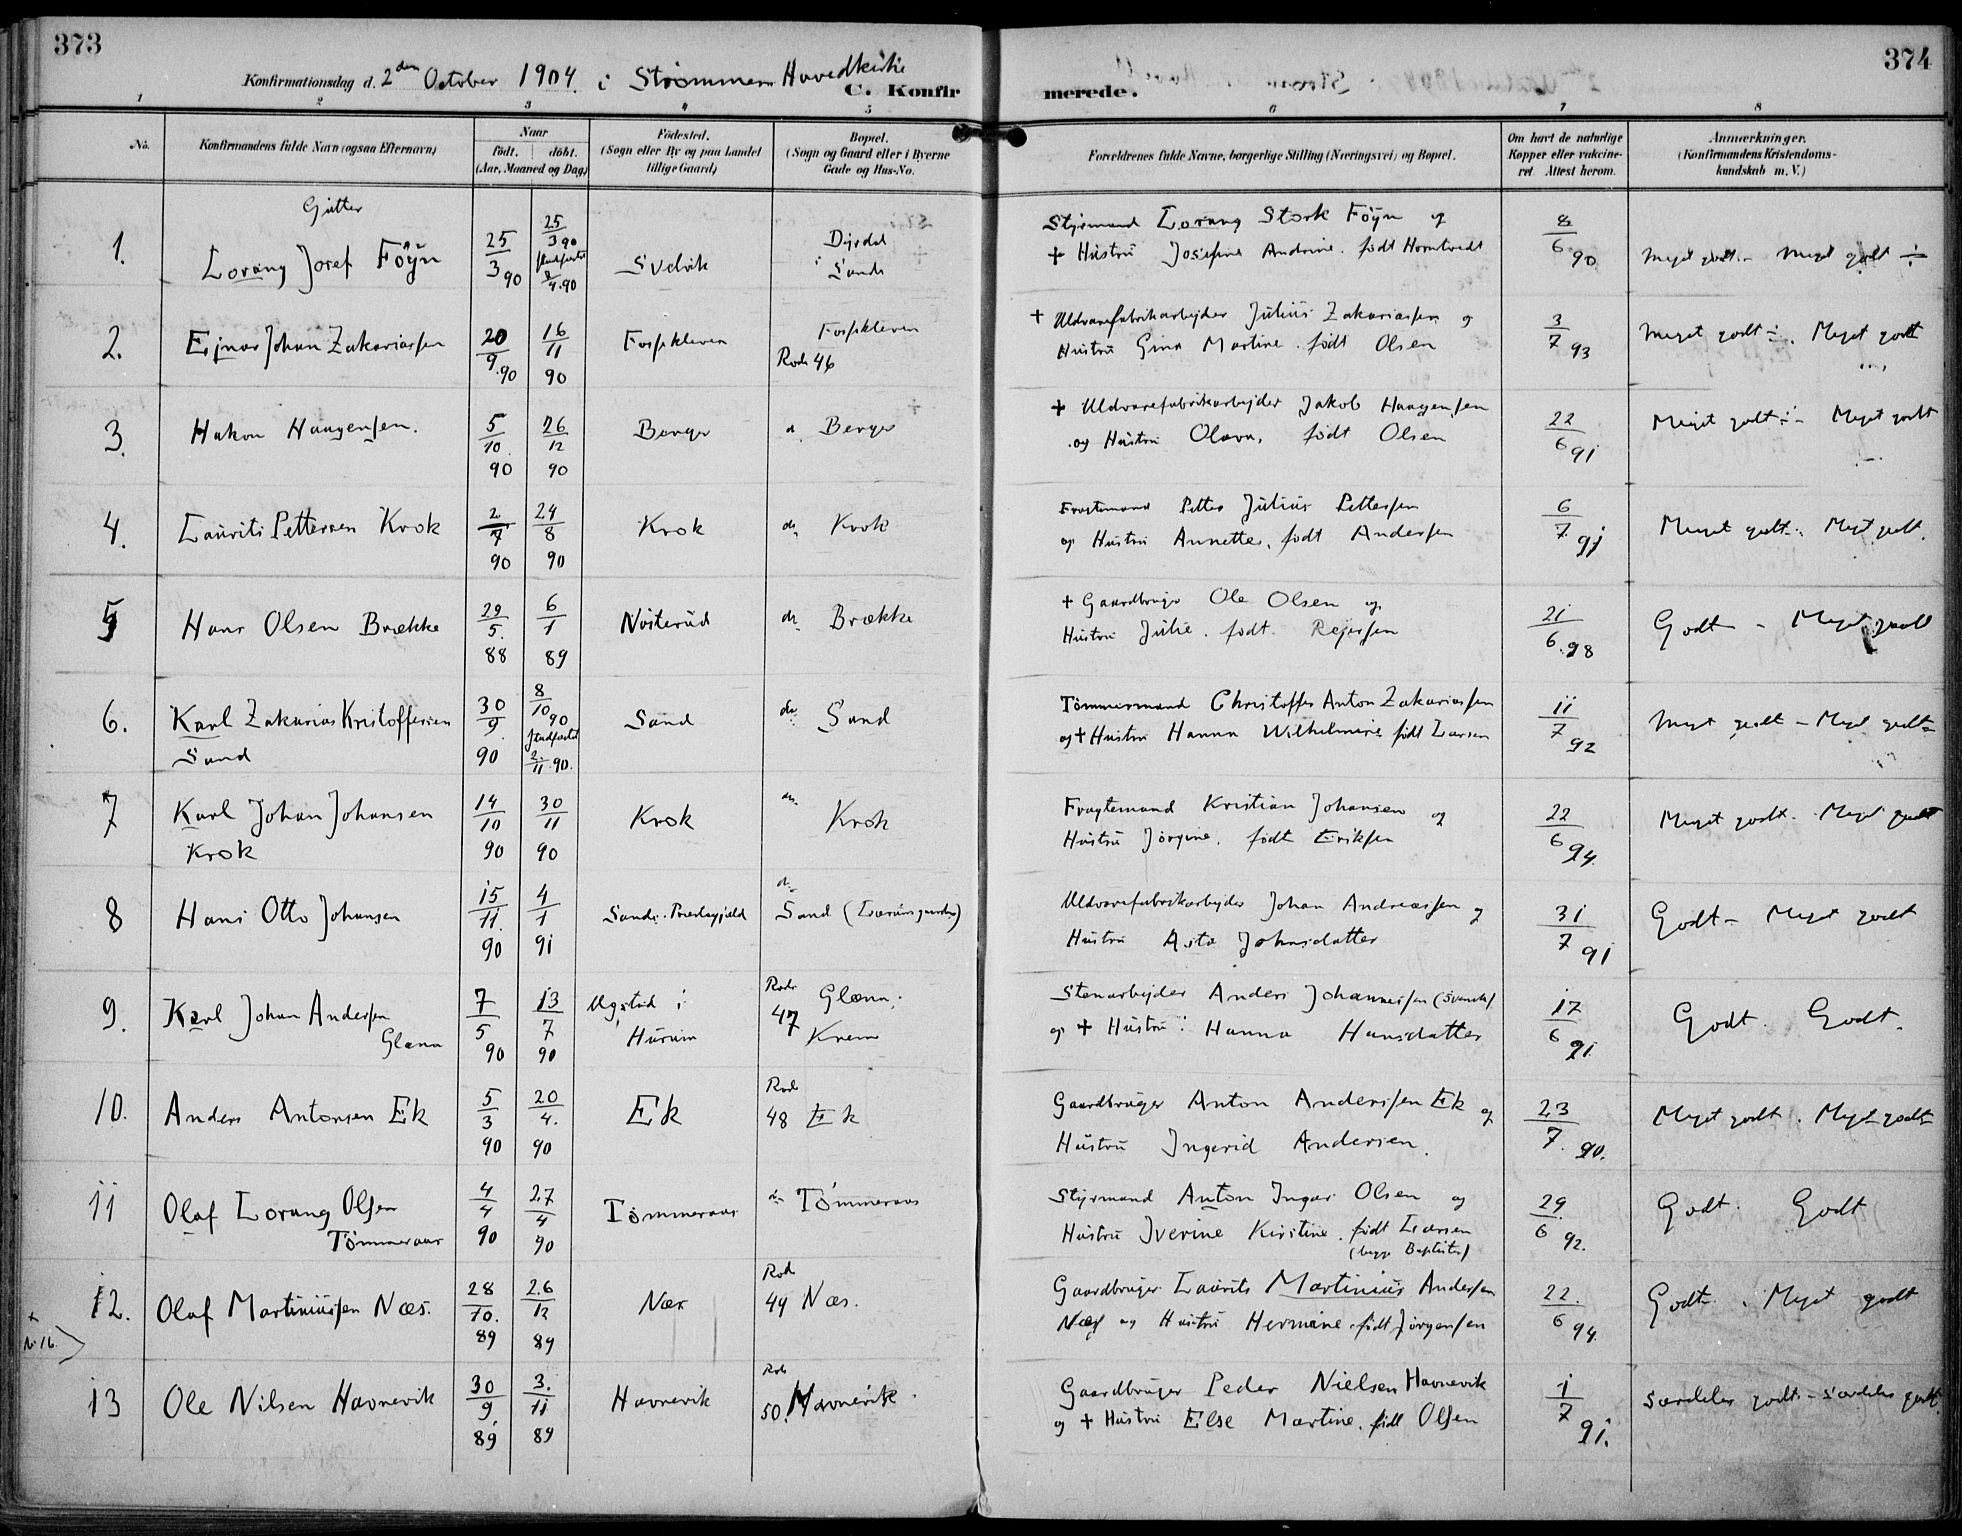 373
374
Konfirmationsdag d. 2den October 1904. i Strømmens Hovedkirke
C. Konfirmerede.
1 2 3 4 5 6 7 8
No.
Konfirmandens fulde Navn (ogsaa Efternavn)
Naar
født. døbt.
(Aar, Maaned og Dag)
Fødested.
(Sogn eller By og paa Landet
tillige Gaard)
Bopæl.
(Sogn og Gaard eller i Byerne
Gade og Hus-No.
Forældrenes fulde Navne, borgerlige Stilling (Næringsvei) og Bopæl.
Om havt de naturlige
Kopper eller vakcine-
ret. Attest herom.
Anmærkninger.
(Konfirmandens Kristendoms-
kundskab m. V.)
Gutter
1. Lorang Josef Föyn 25/3 90 25/3 90 stadfæstet 8/4.90 Svelvik Dyrdal i Sande
Styrmand Lorang Stork Föyn og
+ Hustru Josefine Andrine. født Horntvedt
8/6 90 Meget godt - Meget godt ÷
2. Ejnar Johan Zakariassen 20/9.90 16/11 90 Fossekleven Fossekleven Rode 46
+ Uldvarefabrikarbejder Julius Zakariassen og
Hustru Gina Martine. født Olsen
3/7 93 Meget godt ÷. Meget godt
3. Hakon Haagensen. 5/10. 90 26/12 90 Berger do Berger
+ Uldvarefabrikarbejder Jakob Haagensen
og Hustru Olava, født Olsen
22/6 91 Meget godt ÷ Meget godt
4. Laurits Pettersen Krok 2/7 90 24/8 90 Krok do Krok
Fragtemand Petter Julius Pettersen
og Hustru Annette. født Andersen
6/7 91 Meget godt. Meget godt.
5 Hans Olsen Brække 29/5. 88 6/1 89 Nøsterud do Brække
+ Gaardbruger Ole Olsen og
Hustru Julie. født. Rejersen
21/6.98 Godt - Meget godt
6. Karl Zakarias Kristoffersen
Sand 30/9 90 8/10 90 stadfæstet 2/11.90. Sand do Sand
Tømmermand Christoffer Anton Zakariassen
og + Hustru Hanna Wilhelmine født Larsen
11/7 92 Meget godt - Meget godt
7 Karl Johan Johansen
Krok 14/10 90 30/11 90 Krok do Krok
Fragtemand Kristian Johansen og
Hustru Jørgine. født Eriksen
22/6 94. Meget godt. Meget godt
8 Hans Otto Johansen 15/11. 90 4/1 91 Sande Præstegjeld do Sand
Uldvarefabrikarbejder Johan Andreassen og
Hustru Asta Johnsdatter
31/7 91 Godt - Meget godt
9. Karl Johan Andersen
Glænn 7/5 90 13/7 90 i Hurum Rode 47 Glænn.
Stenarbejder Anders Johannessen (svensk)
og + Hustru: Hanna Hansdatter
17/6 91. Godt. Godt.
10. Anders Antonsen Ek 5/3 90 20/4. 90 Ek Rode 48 Ek
Gaardbruger Anton Anderssen Ek og
Hustru Ingerid Andersen.
23/7. 90. Meget godt. Meget godt
11 Olaf Lorang Olsen
Tømmeraas 4/4 90 27/4 90 Tømmeraas do Tømmeraas
Styrmand Anton Ingar Olsen og
Hustru Iverine Kirstine. født Larsen
(begge Baptister)
29/6 92. Godt. Godt
12. Olaf Martiniussen Næs. 28/10. 89 26/12 89 Næs Rode 49 Næs.
Gaardbruger Laurits Martinius Andersen
Næs og Hustru Hermine. født Jørgensen
22./6 94. Godt. Meget godt
+
No 16.
13 Ole Nilsen Havnevik 30/9 89 3./11 89 Havnevik Rode 50. Havnevik.
Gaardbruger Peder Nielsen Havnevik
og + Hustru Else Martine. født Olsen
1/7 91. Særdeles godt - særdeles godt.